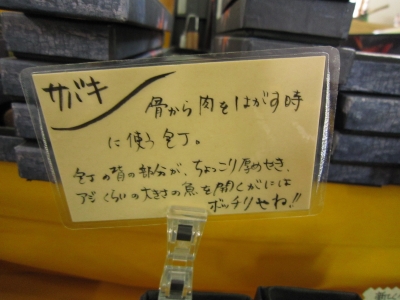 サバキ
骨から肉をはがす時
に使う包丁。
包丁の背の部分が、ちょっこり厚めせき、
アジくらいの大きさの魚を開くがには
ボッチリやね!!